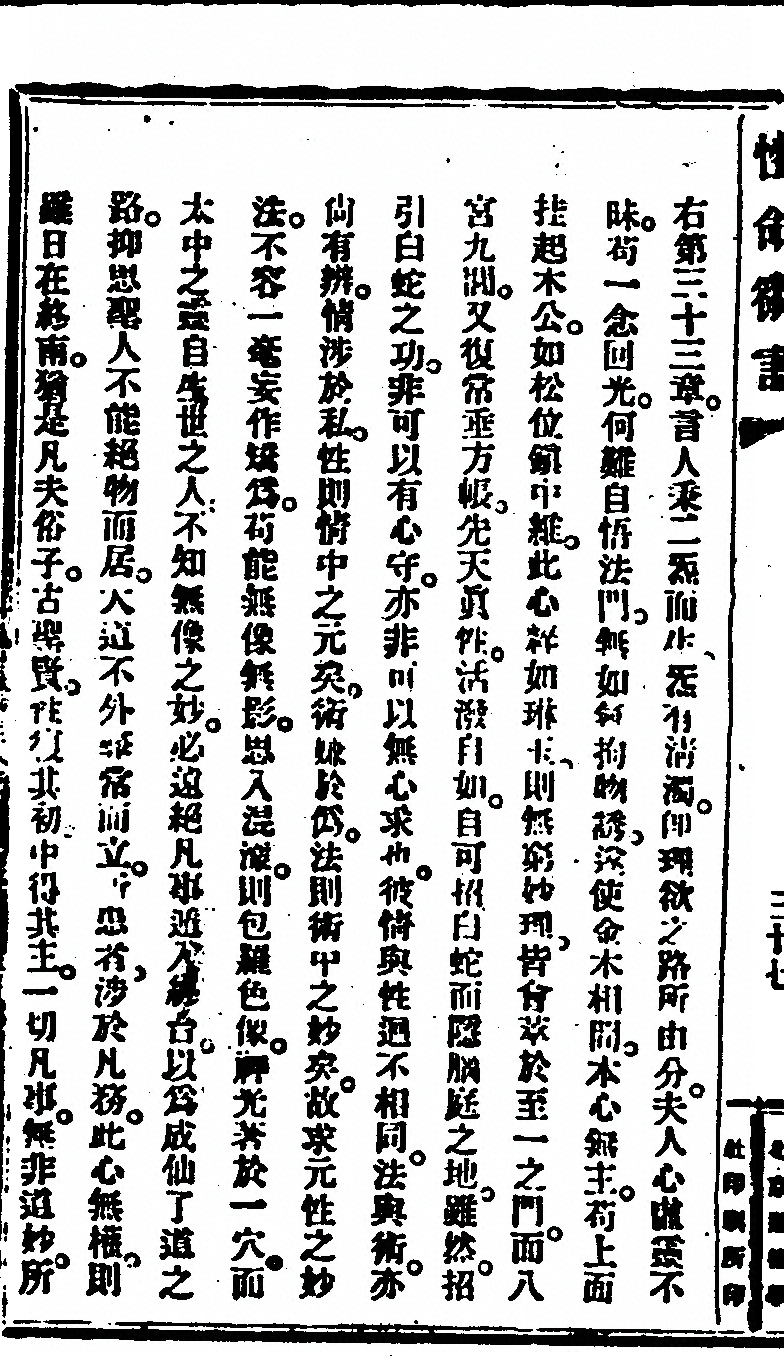 性命
三十七
社印刷所印
右第三十三章。言人秉二炁而生、炁有淸濁。卽理欲之路所由分。夫人心虛靈不
昧。苟一念回光。何難自悟法門。無如拘物誘深使金木相間。本心無主。苟上面
挂起木公。如松位鎭中離。此心祥如琳玉、則無窮妙理。皆會萃於至一之門。而八
宮九洞。又復常垂方帳。先天眞性。活潑自如。自可招白蛇而隱腦庭之地。雖然。招
引白蛇之功。非可以有心守。亦非可以無心求也。彼情與性迥不相同。法與術。亦
尙有辨。情涉於私。性則情中之元矣。術於僞。法則術中之妙矣。故求元性之妙
法。不容一毫妄作爲。苟能無像無影。思入混濛。則包羅色像。神光著於一穴。而
太中之靈自生。世之人。不知無像之妙。必遠絕凡事。遁入台。以爲成仙了道之
路。抑思聖人不能絕物而居。大道不外常而立。患者、涉於凡務。此心無權。則
雖日在終南。猶是凡夫俗子。古聖賢。性復其初。中得其主。一切凡事。無非道妙。所